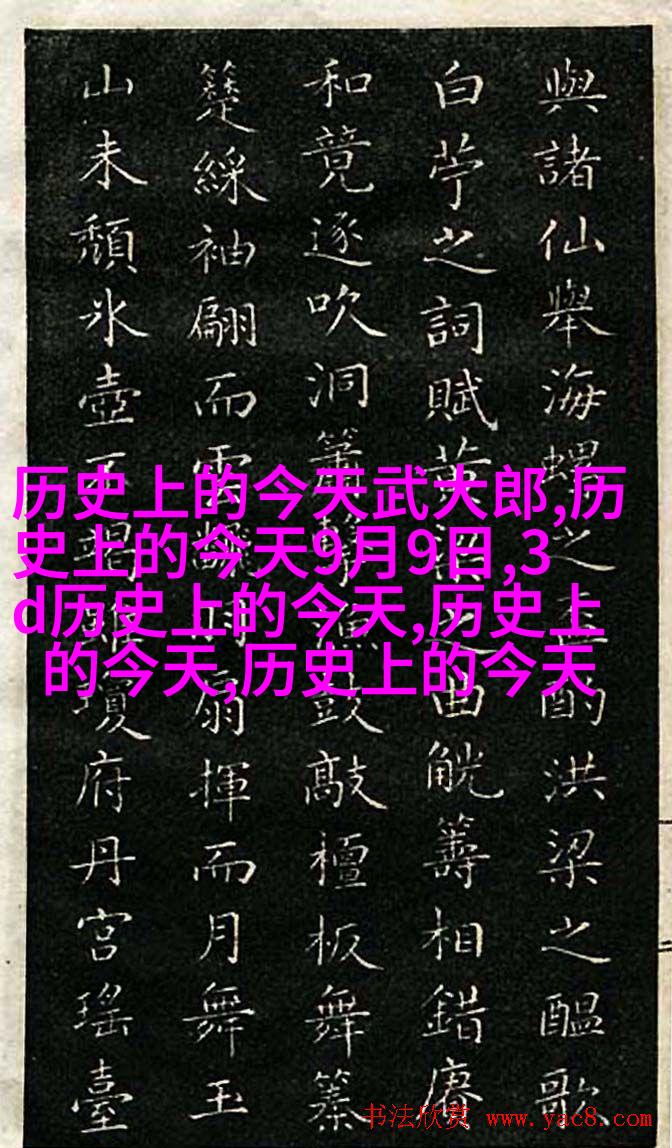 與諸仙舉海螺之酌洪梁之醞歌
白苧之詞賦黃之曲觥籌相錯賡
和竟逐吹洞簫鼓敲檀板舞
綵袖翩而雲扇揮而月舞玉
山未頹氷壺瓊府丹宮瑤臺
历史上的今天武大郎,历
史上的今天9月9日,3
d历史上的今天,历史上
的今天,历史上的今天
书法欣赏 www.yac8.com